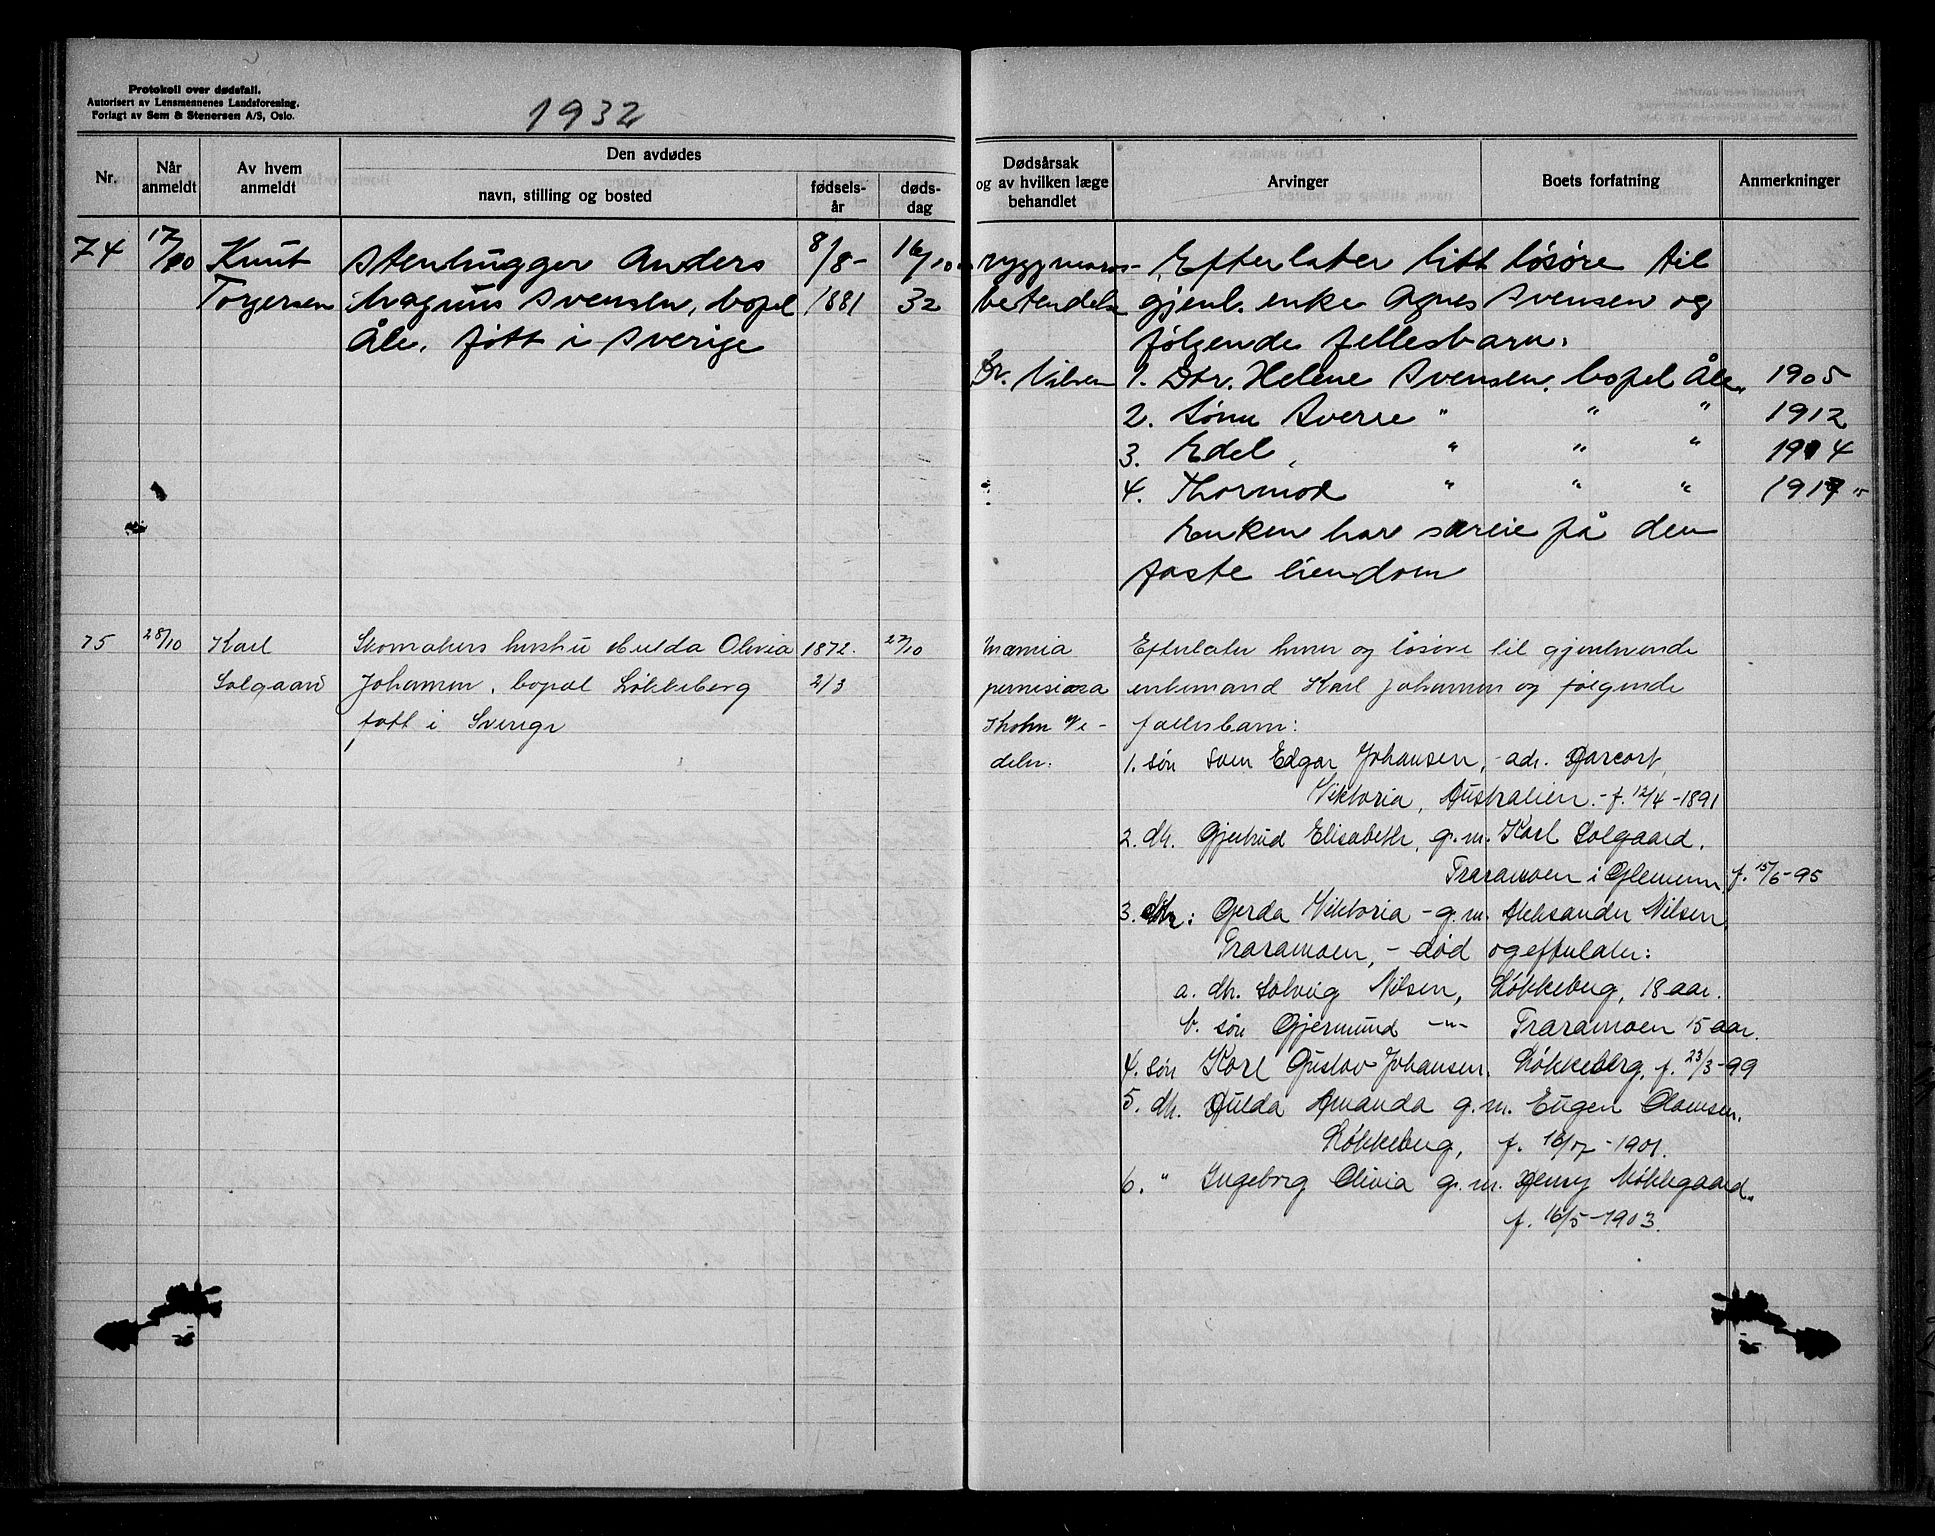 Protokoll over dødsfall.
Autorisert av Lensmennenes Landsforening.
Forlagt av Sem & Stenersen A/S, Oslo.
1932
Nr.
Når anmeldt
Av hvem anmeldt
Den avdødes
navn, stilling og bosted
fødsels-år
døds-dag
Dødsårsak og av hvilken læge behandlet
Arvinger
Boets forfatning
Anmerkninger
74
17/10
Knut
Torgersen
Stenhugger Anders
Magnus Svensen, bopel
Åle, født i Sverige
8/8-
1881
16/10
32
ryggmarvs-
betendelse
Dr. Nilsen
Efterlater litt løsøre til
gjenl. enke Agnes Svensen og
følgende fellesbarn:
1. Dtr. Helene Svensen, bopel Åle, 1905
2. Sønn Sverre " " " 1912
3. Edel, " " " 1914
4. Thormod " " "
Enken har særeie på den
faste eiendom
75
28/10
Karl
Solgaard
Skomakers hustru Hulda Olivia
Johansen, bopæl Løkkeberg
født i Sverige
1872.
2/3
27/10
Efterlater huser og løsøre til gjenlevende
enkemand Karl Johansen og følgende
fællesbarn:
1. søn Sven Edgar Johansen, - adr.
Viktoria, Australien. - f. 12/4 - 1891
2. dtr. Gjertrud Elisabeth, g. m. Karl Solgaard,
Traramoen i Glemmen, f. 15/6 - 95
3. dtr: Gerda Viktoria - g. m. Aleksander Nilsen,
Traramoen, - død og efterlater:
a. dtr. Solveig Nilsen, Løkkeberg, 18 aar.
b. søn Gjermund -"- Traramoen 15 aar.
4. søn Karl Gustav Johansen, Løkkeberg, f. 23/3 - 99
5. dtr. Hulda Amanda g. m. Eugen Olavsen,
Løkkeberg, f. 16/7 - 1901.
6. " Ingeborg Olivia g. m. Henry Møkkegaard.
f. 16/5 - 1903.